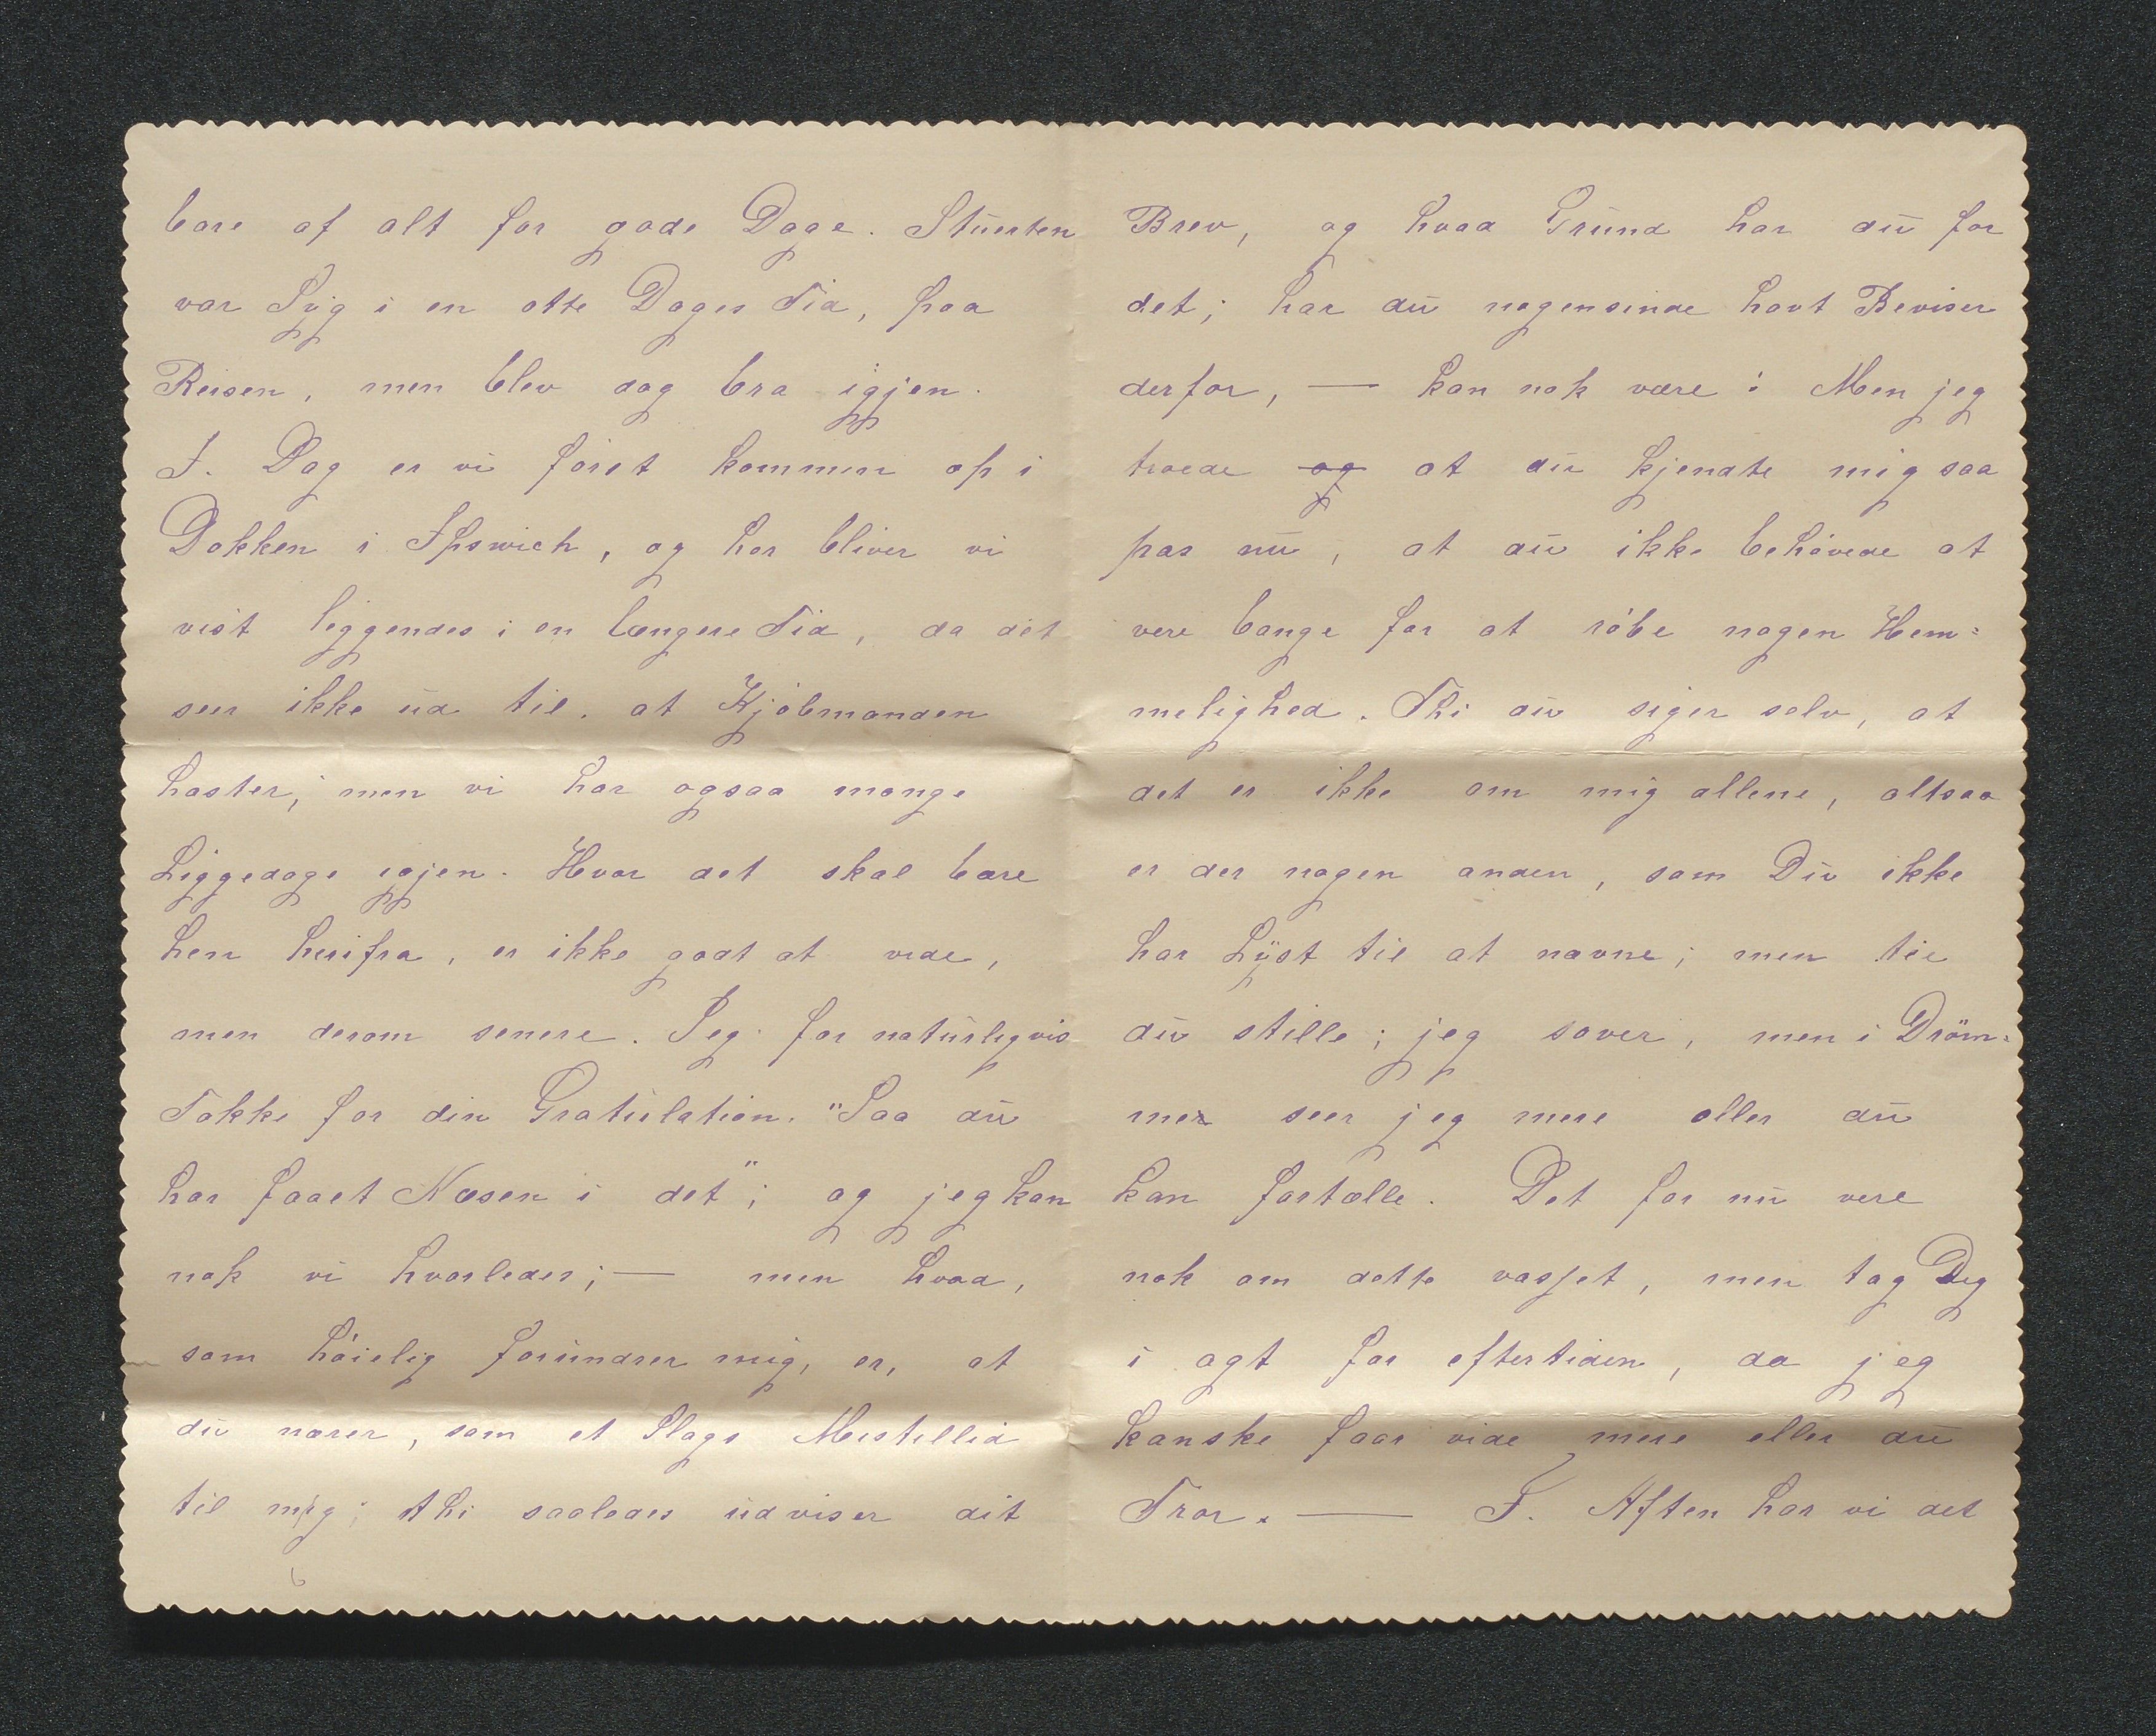 bare af alt for gode Dage. Stuerten
var Syg i en otte Dages Tid, paa
Reisen, men blev dog bra igjen.
I. Dag er vi først kommen op i
Dokken i Ipswich, og her bliver vi
vist liggendes i en længere Tid, da det
seer ikke ud til. at Kjøbmanden
haster; men vi har ogsaa mange
Liggedage igjen. Hvor det skal bære
hen herifra, er ikke godt at vide,
men derom senere. Jeg faar naturligvis
Takke for din Gratulation. "Saa du
har faaet Næsen i det"; og jeg kan
nok vi hvorledes; — men hvad,
som høielig forundrer mig, er, at
du nærer, som et Slags Mistillid
til mig; thi saaledes udviser dit
Brev, og hvad Grund har du for
det; har du nogensinde havt Beviser
derfor, — kan nok være! Men jeg
troede og at du kjendte mig saa
pas nu, at du ikke behøvede at
vere bange for at røbe nogen Hem=
melighed. Thi du siger selv, at
det er ikke om mig allene, altsaa
er der nogen anden, som Du ikke
har Lyst til at nævne; men tie
du stille; jeg sover, men i Dröm=
mer seer jeg mere eller du
kan fortælle. Det for nu vere
nok om dette vasset, men tag Dig
i agt for eftertiden, da jeg
kanske faar vide mere eller du
Tror. — I. Aften har vi det